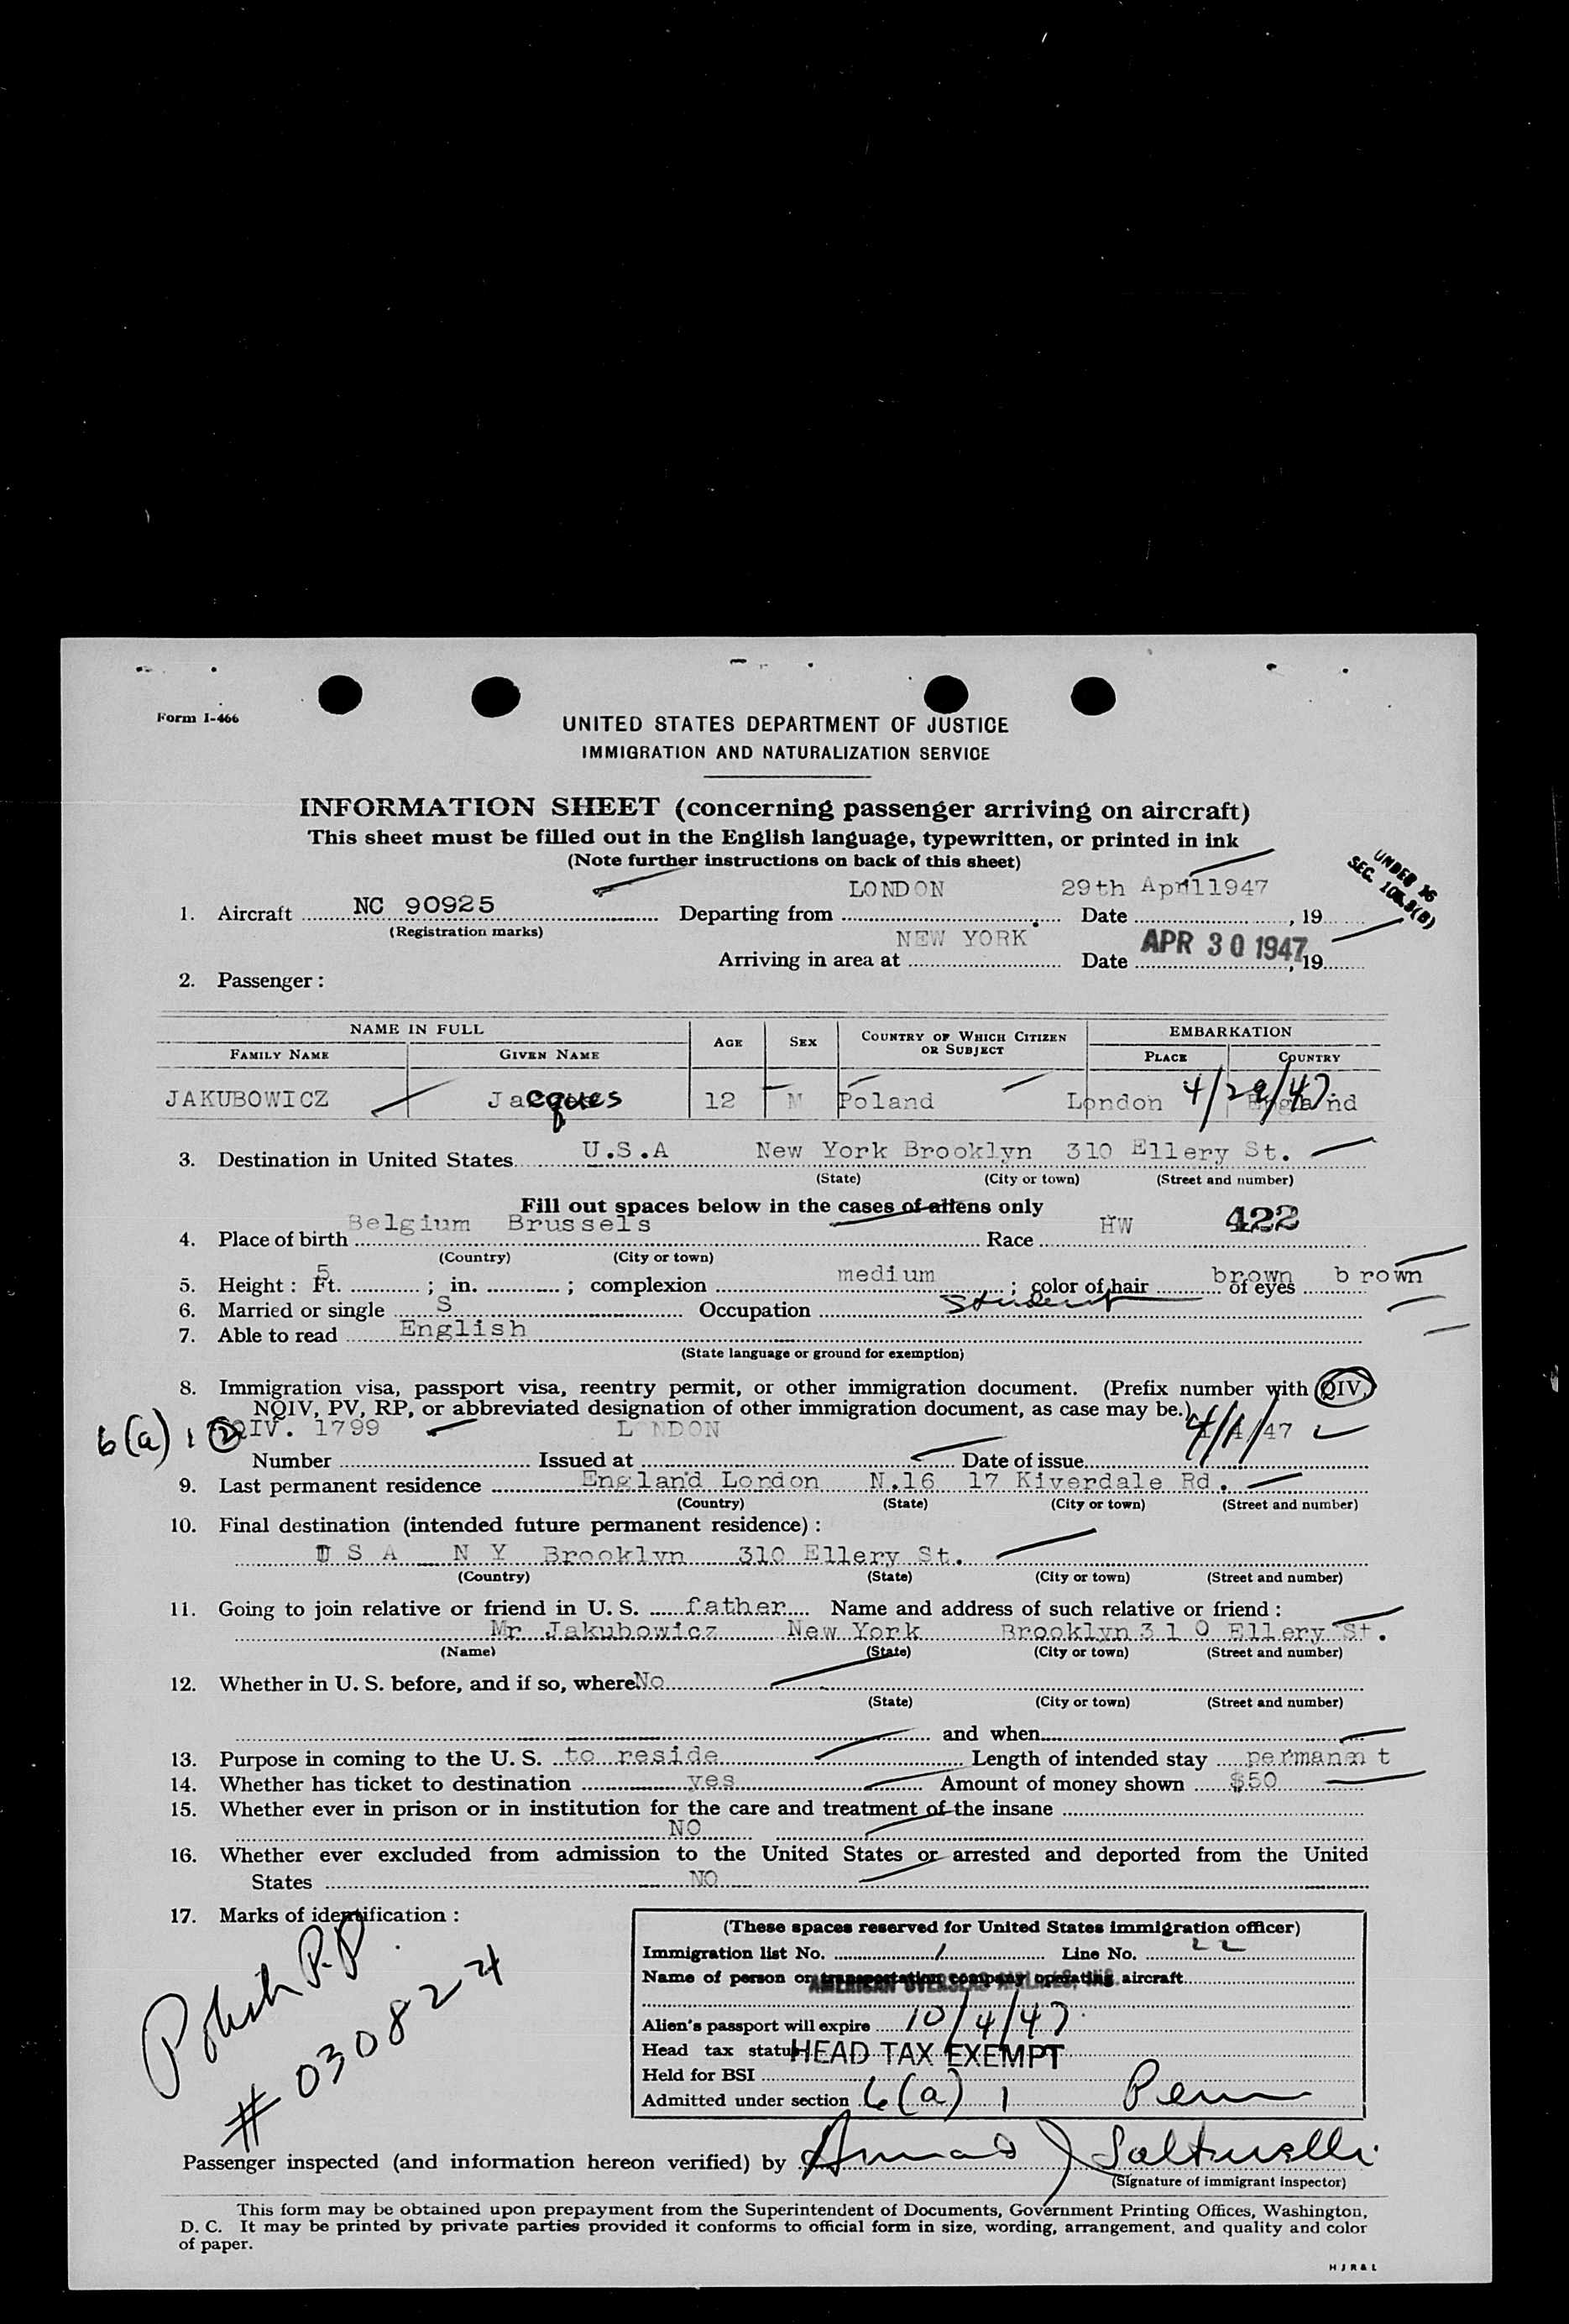 Form I-466
UNITED STATES DEPARTMENT OF JUSTICE
IMMIGRATION AND NATURALIZATION SERVICE
INFORMATION SHEET (concerning passenger arriving on aircraft)
This sheet must be filled out in the English language, typewritten, or printed in ink
(Note further instructions on back of this sheet)
UNDER 16
SEC.
1. Aircraft NC 90925 Departing from LONDON Date 29th April 1947, 19
(Registration marks)
Arriving in area at NEW YORK Date APR 30 1947, 19
2. Passenger:
NAME IN FULL
FAMILY NAME GIVEN NAME AGE SEX COUNTRY OF WHICH CITIZEN OR SUBJECT EMBARKATION
PLACE COUNTRY
JAKUBOWICZ Jacques 12 M Poland London 4/29/47 England
3. Destination in United States U.S.A New York Brooklyn 310 Ellery St.
(State) (City or town) (Street and number)
Fill out spaces below in the cases of aliens only
4. Place of birth Belgium Brussels Race HW 422
(Country) (City or town)
5. Height: Ft. 5; in. ; complexion medium; color of hair brown of eyes brown
6. Married or single S Occupation Student
7. Able to read English
(State language or ground for exemption)
8. Immigration visa, passport visa, reentry permit, or other immigration document. (Prefix number with QIV,
NQIV, PV, RP, or abbreviated designation of other immigration document, as case may be.)
6(a) 1 QIV. 1799 L NDON 4/4/47
Number Issued at Date of issue
9. Last permanent residence England London N.16 17 Kiverdale Rd.
(Country) (State) (City or town) (Street and number)
10. Final destination (intended future permanent residence):
U S A N Y Brooklyn 310 Ellery St.
(Country) (State) (City or town) (Street and number)
11. Going to join relative or friend in U. S. father Name and address of such relative or friend:
Mr Jakubowicz New York Brooklyn 3 1 0 Ellery St.
(Name) (State) (City or town) (Street and number)
12. Whether in U. S. before, and if so, where No
(State) (City or town) (Street and number)
and when
13. Purpose in coming to the U. S. to reside Length of intended stay permanent
14. Whether has ticket to destination yes Amount of money shown $50
15. Whether ever in prison or in institution for the care and treatment of the insane
NO
16. Whether ever excluded from admission to the United States or arrested and deported from the United
States NO
17. Marks of identification:
Polish P.P.
# 030824
(These spaces reserved for United States immigration officer)
Immigration list No. 1 Line No. 22
Name of person or transportation company operating aircraft
AMERICAN OVERSEAS AIRLINES, INC
Alien's passport will expire 10/4/47
Head tax status HEAD TAX EXEMPT
Held for BSI
Admitted under section 6(a) 1 Perm
Passenger inspected (and information hereon verified) by
(Signature of immigrant inspector)
This form may be obtained upon prepayment from the Superintendent of Documents, Government Printing Offices, Washington,
D. C. It may be printed by private parties provided it conforms to official form in size, wording, arrangement, and quality and color
of paper.
H J R & L